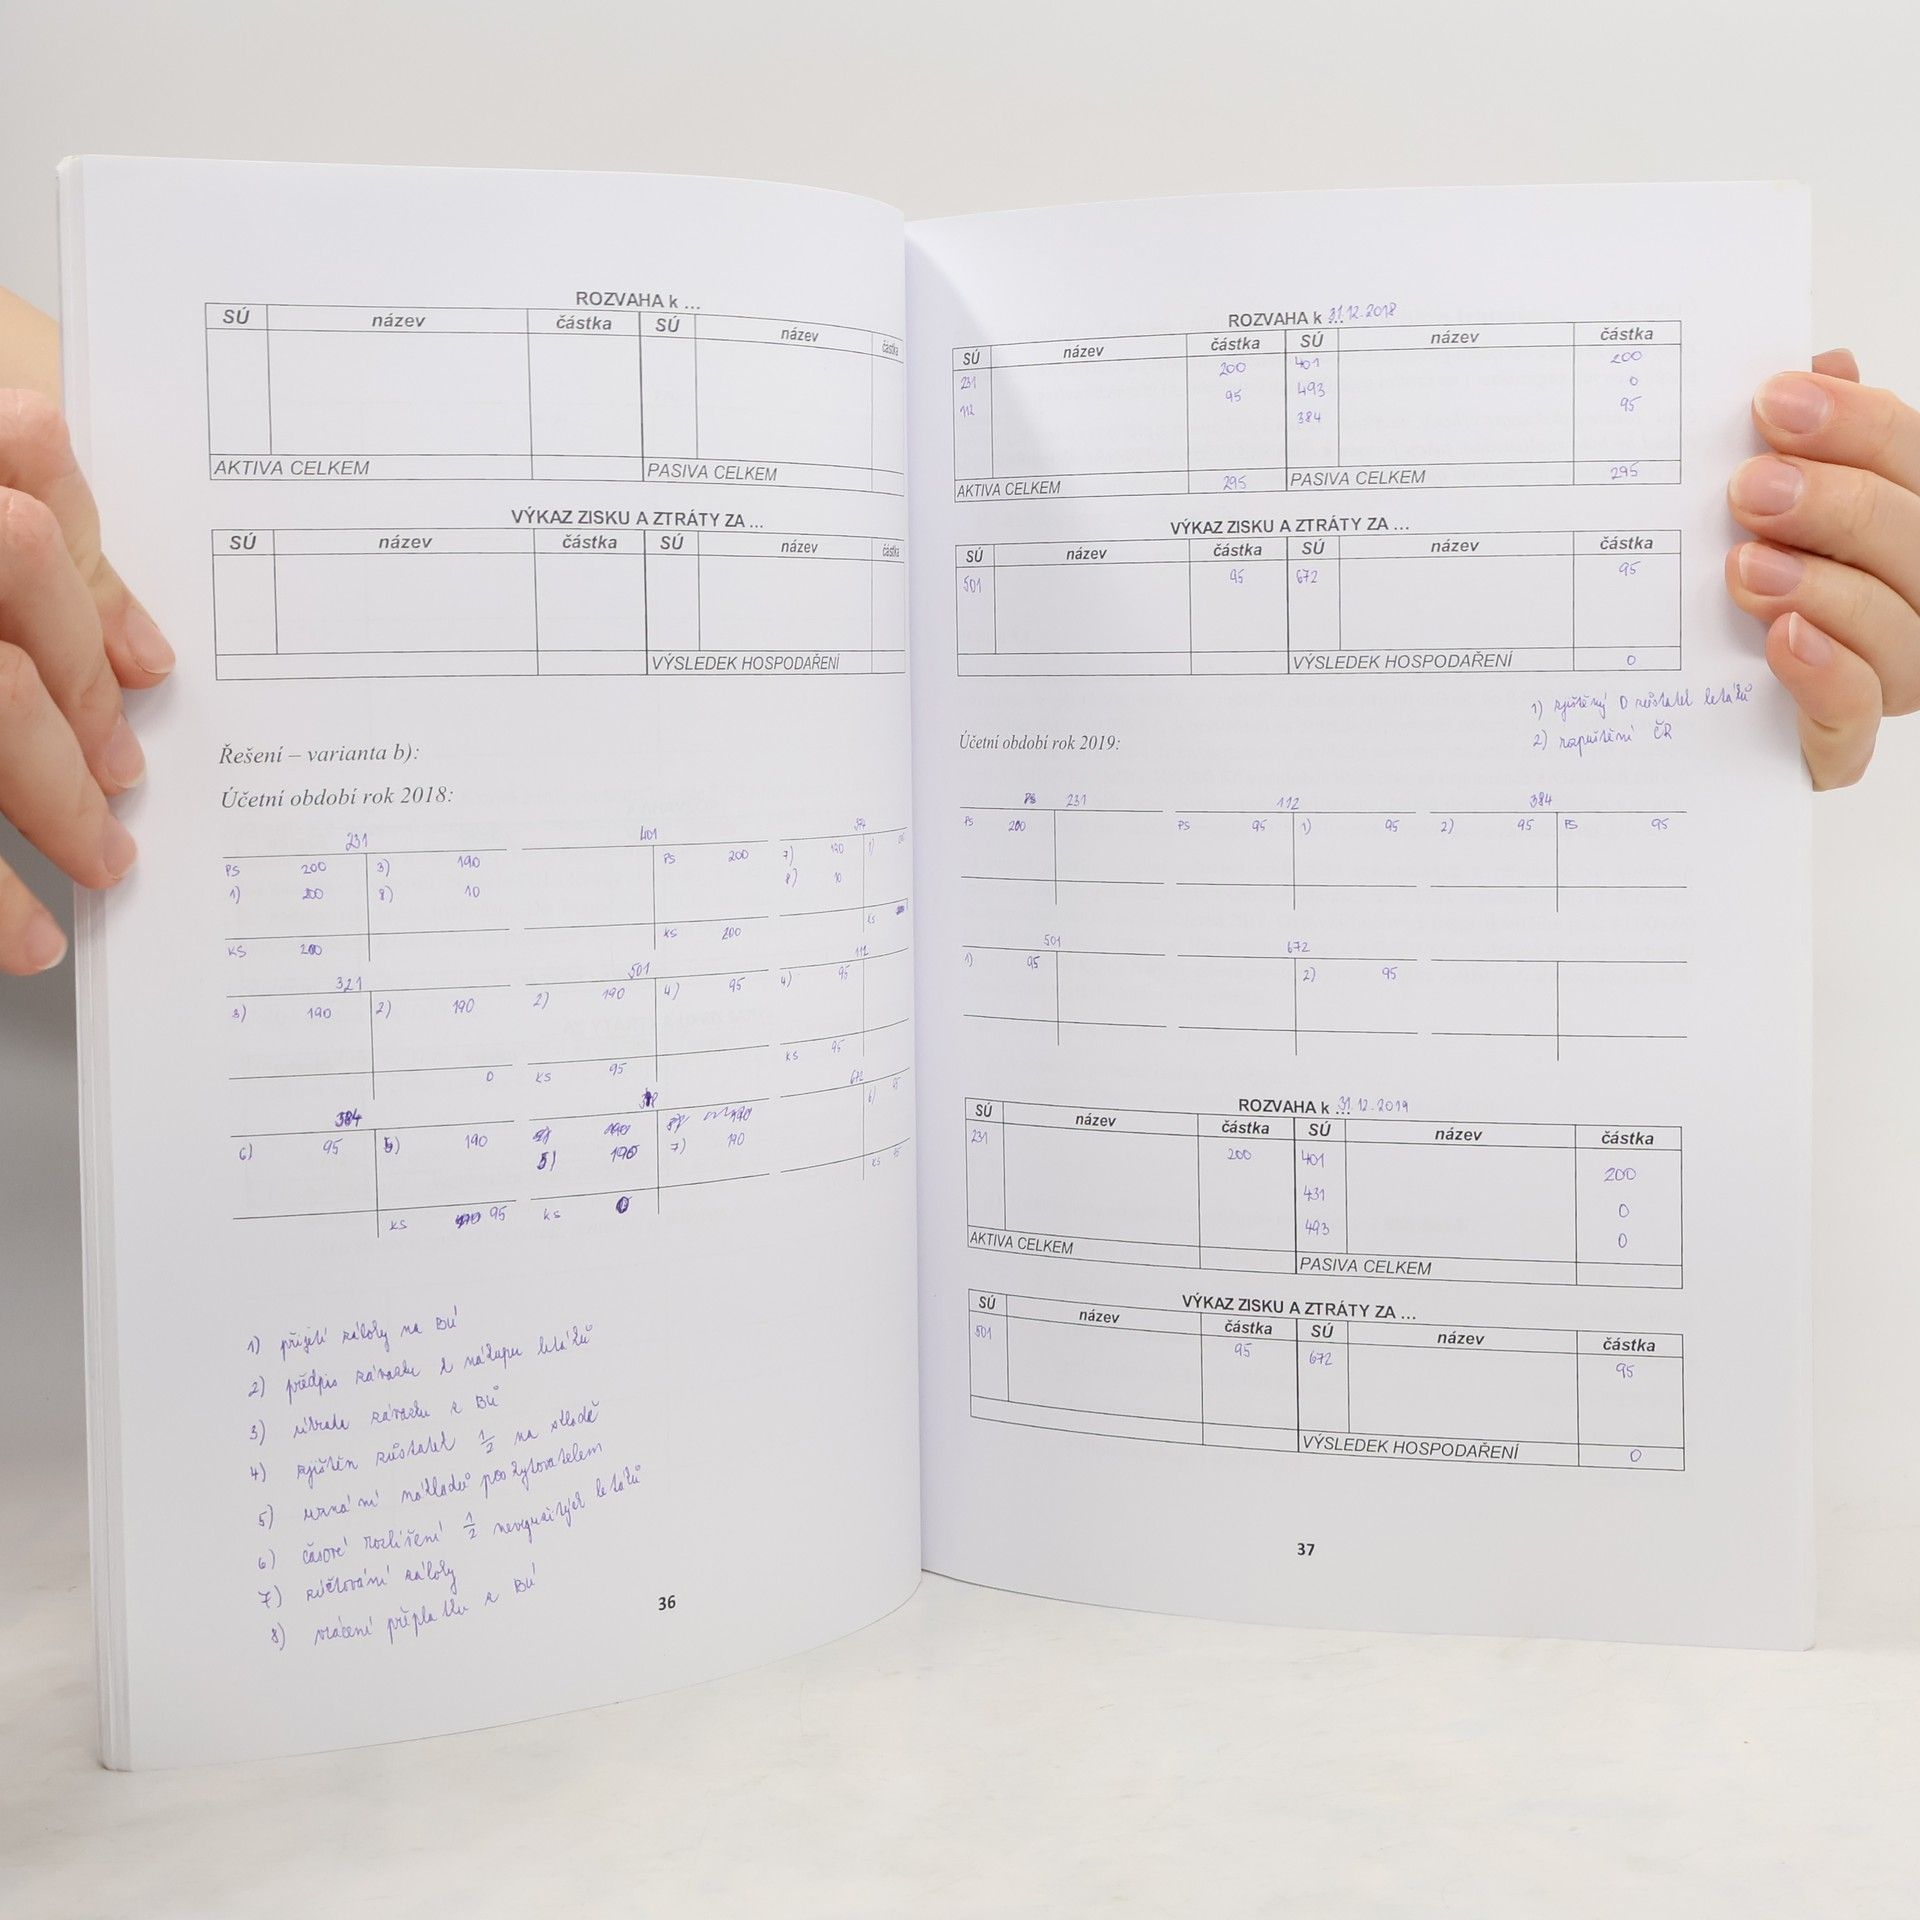 ROZVAHA k ...
SÚ název částka SÚ název částka
AKTIVA CELKEM PASIVA CELKEM
VÝKAZ ZISKU A ZTRÁTY ZA ...
SÚ název částka SÚ název částka
VÝSLEDEK HOSPODAŘENÍ
Řešení – varianta b):
Účetní období rok 2018:
231 401
PS 200 3) 190 PS 200 7) 190 1)
1) 200 8) 10 8) 10
KS 200 KS 200 KS
321 501 112
3) 190 2) 190 2) 190 4) 95 4) 95
0 KS 95 KS 95
384 672
6) 95 5) 190 5) 190 7) 190 6)
KS 95 KS 0 KS
1) přijetí zálohy na BÚ
2) předpis závazku k nákupu letáků
3) úhrada závazku z BÚ
4) zjištěn zůstatek 1/2 na skladě
5) uznání nákladů poskytovatelem
6) časové rozlišení 1/2 nevyužitých letáků
7) zúčtování zálohy
8) vrácení přeplatku z BÚ
36
ROZVAHA k ... 31.12.2018
SÚ název částka SÚ název částka
231 200 401 200
112 95 493 0
384 95
AKTIVA CELKEM 295 PASIVA CELKEM 295
VÝKAZ ZISKU A ZTRÁTY ZA ...
SÚ název částka SÚ název částka
501 95 672 95
VÝSLEDEK HOSPODAŘENÍ 0
1) zjištěný 0 zůstatek letáků
2) rozpuštění ČR
Účetní období rok 2019:
231 112 384
PS 200 PS 95 1) 95 2) 95 PS 95
501 672
1) 95 2) 95
ROZVAHA k ... 31.12.2019
SÚ název částka SÚ název částka
231 200 401 200
431 0
493 0
AKTIVA CELKEM PASIVA CELKEM
VÝKAZ ZISKU A ZTRÁTY ZA ...
SÚ název částka SÚ název částka
501 95 672 95
VÝSLEDEK HOSPODAŘENÍ 0
37